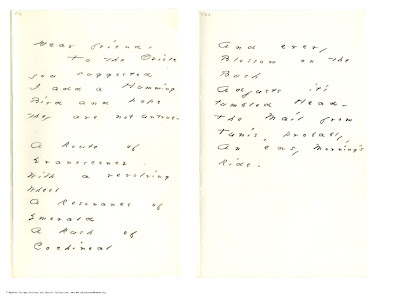 Dear friend.
To the Oriole
you suggested
I add a Humming
Bird and hope
they are not untrue -
A Route of
Evanescence.
With a revolving
Wheel
A Resonance of
Emerald
A Rush of
Cochineal
And every
Blossom on the
Bush
Adjusts it's
tumbled Head -
The Mail from
Tunis, probably,
An easy Morning's
Ride.